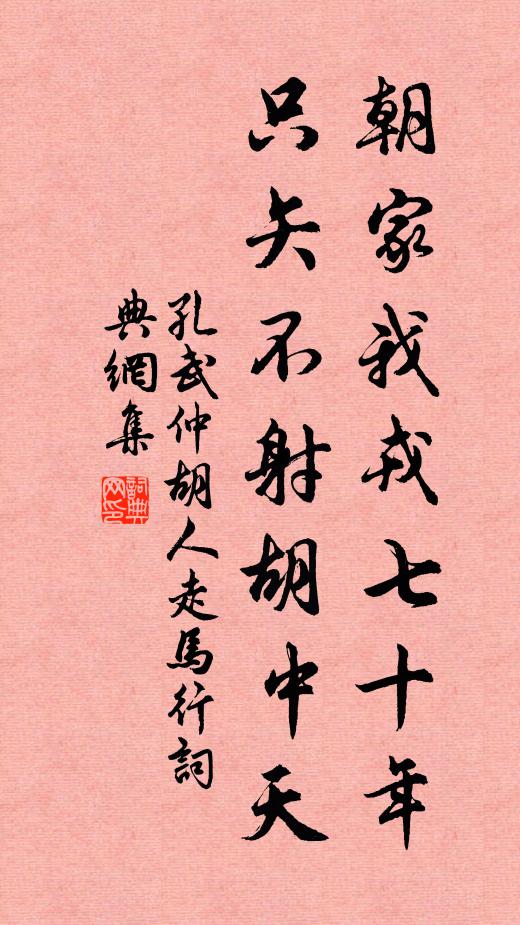 朝家我戎七十年
只矢不射胡中天
孔武仲胡人走馬行詞
典網集
詞典
网印